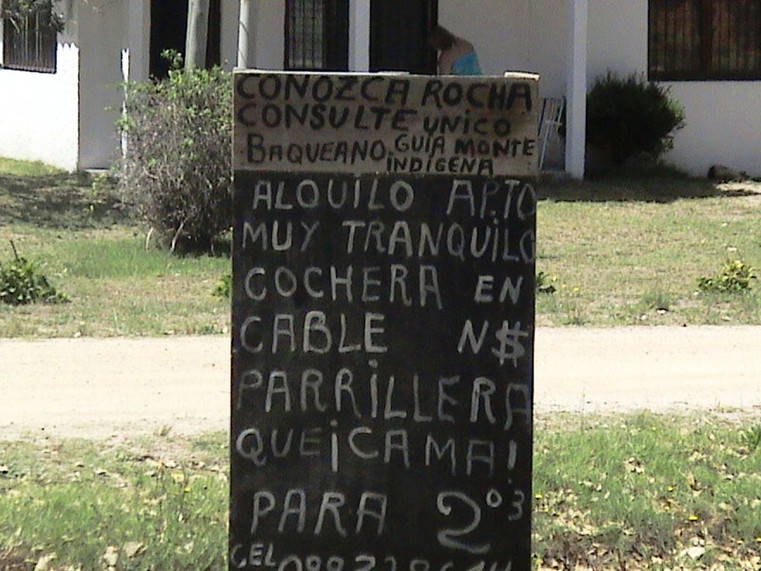 CONOZCA ROCHA
CONSULTE UNICO
BAQUEANO GUIA MONTE
INDIGENA
ALQUILO APTO
MUY TRANQUILO
COCHERA EN
CABLE N$
PARRILLERA
QUE ¡CAMA!
PARA 2º3
CEL